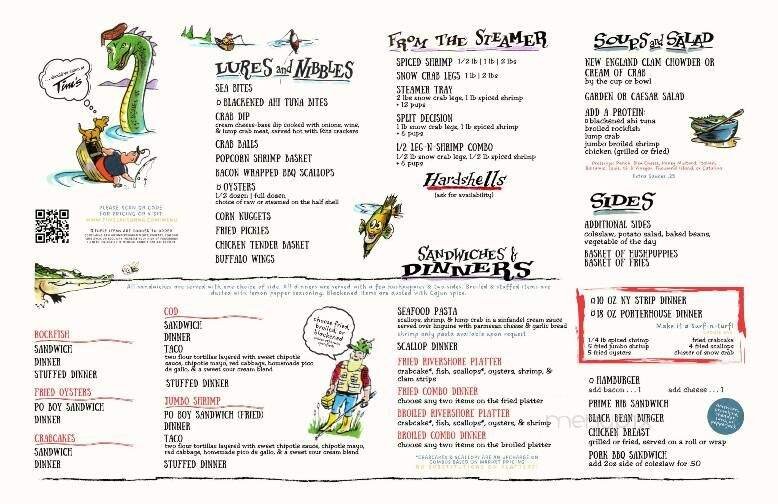 should we eat at
Tim's
PLEASE SCAN QR CODE
FOR PRICING OR VISIT
LURES and NIBBLES
SEA BITES
BLACKENED AHI TUNA BITES
CRAB DIP
cream cheese-base dip cooked with onions, wine,
& lump crab meat, served hot with Ritz crackers
CRAB BALLS
POPCORN SHRIMP BASKET
BACON WRAPPED BBQ SCALLOPS
OYSTERS
1/2 dozen | full dozen
choice of raw or steamed on the half shell
CORN NUGGETS
FRIED PICKLES
CHICKEN TENDER BASKET
BUFFALO WINGS
FROM THE STEAMER
SPICED SHRIMP 1/2 lb | 1 lb | 2 lbs
SNOW CRAB LEGS 1 lb | 2 lbs
STEAMER TRAY
2 lbs snow crab legs, 1 lb spiced shrimp
+ 12 pups
SPLIT DECISION
1 lb snow crab legs, 1 lb spiced shrimp
+ 6 pups
1/2 LEG-N-SHRIMP COMBO
1/2 lb snow crab legs, 1/2 lb spiced shrimp
+ 6 pups
Hardshells
(ask for availability)
SOUPS and SALAD
NEW ENGLAND CLAM CHOWDER OR
CREAM OF CRAB
by the cup or bowl
GARDEN OR CAESAR SALAD
ADD A PROTEIN:
blackened ahi tuna
broiled rockfish
lump crab
jumbo broiled shrimp
chicken (grilled or fried)
Extra Sauces .25
SIDES
ADDITIONAL SIDES
coleslaw, potato salad, baked beans,
vegetable of the day
BASKET OF HUSHPUPPIES
BASKET OF FRIES
SANDWICHES &
DINNERS
All sandwiches are served with one choice of side. All dinners are served with a few hushpuppies & two sides. Broiled & stuffed items are
dusted with lemon pepper seasoning. Blackened items are dusted with Cajun spice.
ROCKFISH
SANDWICH
DINNER
STUFFED DINNER
FRIED OYSTERS
PO BOY SANDWICH
DINNER
CRABCAKES
SANDWICH
DINNER
COD
SANDWICH
DINNER
TACO
two flour tortillas layered with sweet chipotle
sauce, chipotle mayo, red cabbage, homemade pico
de gallo, & a sweet sour cream blend
STUFFED DINNER
JUMBO SHRIMP
PO BOY SANDWICH (FRIED)
DINNER
TACO
two flour tortillas layered with sweet chipotle sauce, chipotle mayo,
red cabbage, homemade pico de gallo, & a sweet sour cream blend
STUFFED DINNER
choose fried,
broiled, or
blackened
SEAFOOD PASTA
scallops, shrimp, & lump crab in a zinfandel cream sauce
served over linguine with parmesan cheese & garlic bread
shrimp only pasta available upon request
SCALLOP DINNER
FRIED RIVERSHORE PLATTER
crabcake*, fish, scallops*, oysters, shrimp, &
clam strips
FRIED COMBO DINNER
choose any two items on the fried platter
BROILED RIVERSHORE PLATTER
crabcake*, fish, scallops*, oysters, & shrimp
BROILED COMBO DINNER
choose any two items on the broiled platter
*CRABCAKES & SCALLOPS ARE AN UPCHARGE ON
COMBOS BASED ON MARKET PRICING
NO SUBSTITUTIONS ON PLATTERS!
10 OZ NY STRIP DINNER
18 OZ PORTERHOUSE DINNER
Make it a Surf-n-turf!
1/4 lb spiced shrimp
5 fried jumbo shrimp
5 fried oysters
fried crabcake
4 fried scallops
cluster of snow crab
HAMBURGER
add bacon . . . 1 add cheese . . . 1
PRIME RIB SANDWICH
BLACK BEAN BURGER
CHICKEN BREAST
grilled or fried, served on a roll or wrap
PORK BBQ SANDWICH
add 2oz side of coleslaw for .50